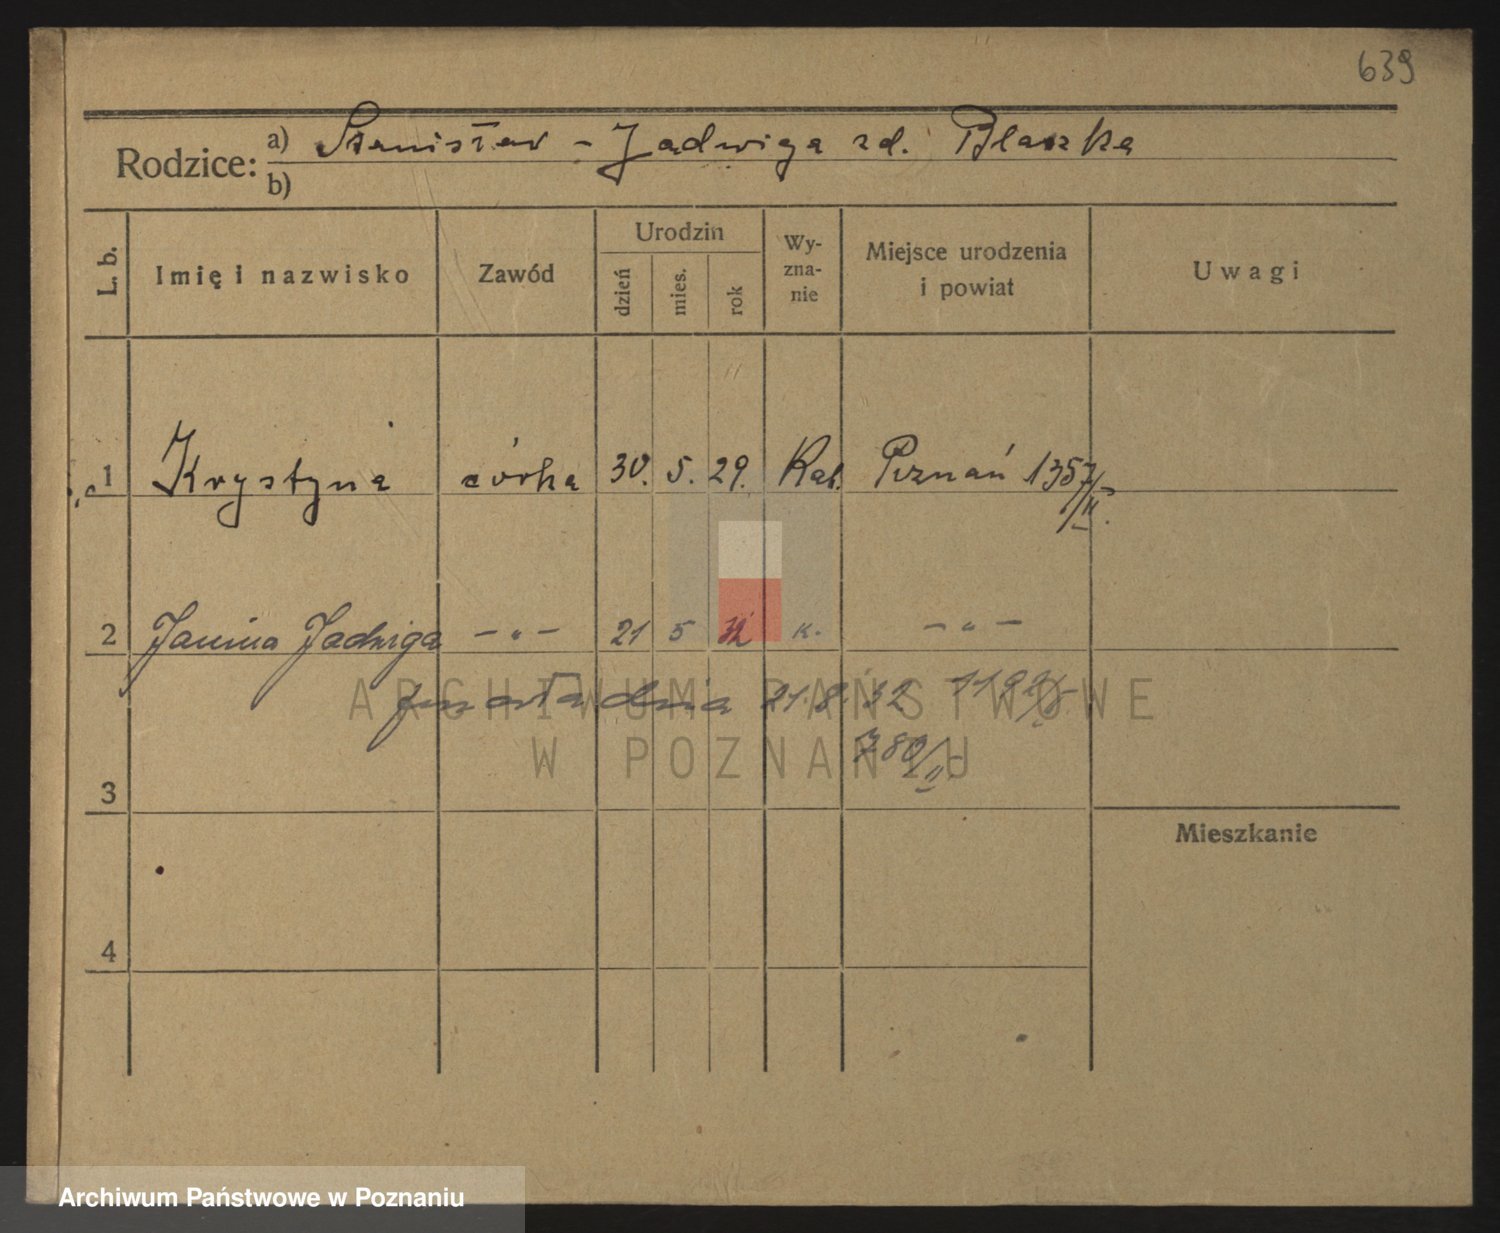 639
Rodzice: a) Stanisław - Jadwiga zd. Blaszka
b)
L. b. Imię i nazwisko Zawód Urodzin dzień mies. rok Wy-zna-nie Miejsce urodzenia i powiat Uwagi
1 Krystyna córka 30. 5. 29. Kat. Poznań 1357/II.
2 Janina Jadwiga - " - 21 5 32 k. - " -
zmarła dnia 21.8.32
780/II
3
Mieszkanie
4
ARCHIWUM PAŃSTWOWE
W POZNANIU
Archiwum Państwowe w Poznaniu